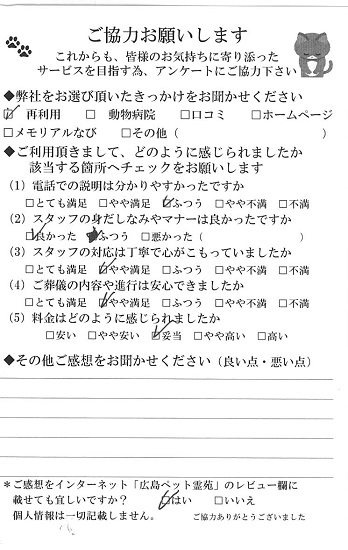 ご協力お願いします
これからも、皆様のお気持ちに寄り添った
サービスを目指す為、アンケートにご協力下さい
◆弊社をお選び頂いたきっかけをお聞かせください
☑ 再利用 □ 動物病院 □口コミ □ホームページ
□メモリアルなび □その他 ( )
◆ご利用頂きまして、どのように感じられましたか
該当する箇所へチェックをお願いします
(1) 電話での説明は分かりやすかったですか
□とても満足 □やや満足 ☑ふつう □やや不満 □不満
(2) スタッフの身だしなみやマナーは良かったですか
☑良かった ■ふつう □悪かった ( )
(3) スタッフの対応は丁寧で心がこもっていましたか
□とても満足 ☑やや満足 □ふつう □やや不満 □不満
(4) ご葬儀の内容や進行は安心できましたか
□とても満足 ☑やや満足 □ふつう □やや不満 □不満
(5) 料金はどのように感じられましたか
□安い □やや安い ☑妥当 □やや高い □高い
◆その他ご感想をお聞かせください (良い点・悪い点)
*ご感想をインターネット「広島ペット霊苑」のレビュー欄に
載せても宜しいですか? ☑はい □いいえ
個人情報は一切記載しません。 ご協力ありがとうございました